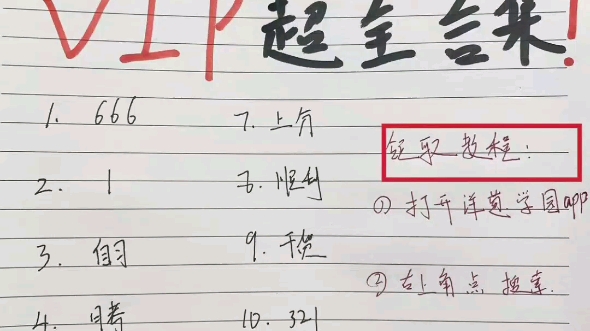 VIP 超全合集!
1. 666
2. 1
3. 自习
4. 月考
7. 上岸
8. 顺利
9. 干货
10. 321
领取教程:
① 打开洋葱学园app
② 右上角点搜索.